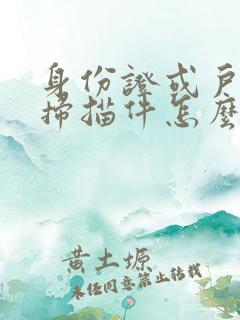 身份證或戶
掃描件怎麼
黄土塬
未经同意禁止转载